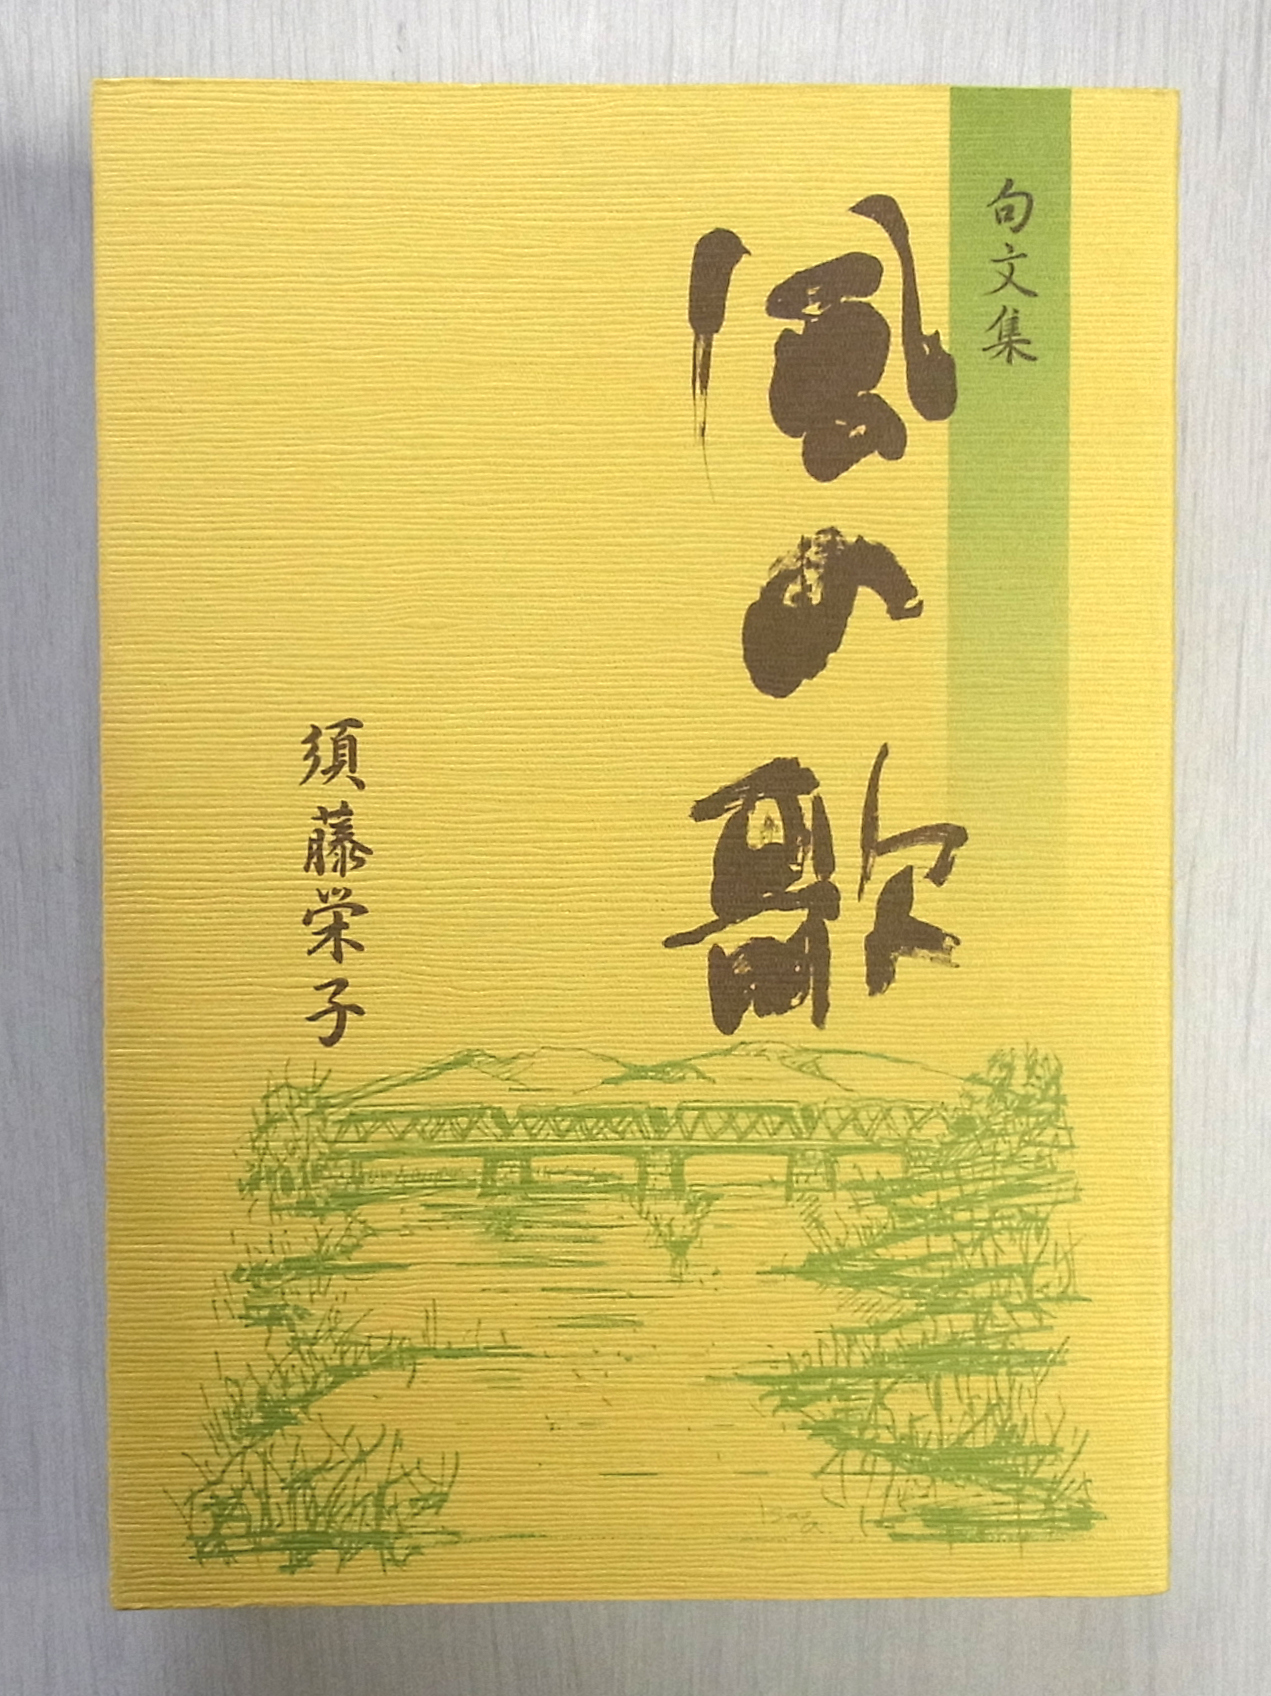 句文集
風の歌
須藤栄子